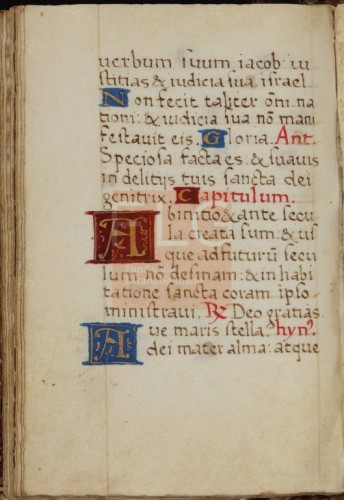 uerbum suum iacob iu
stitias & iudicia sua israel
Non fecit taliter om̄i na
tioni: & iudicia sua nō mani
festavit eis. Gloria. Ant.
Speciosa facta es: & suavis
in delitijs tuis sancta dei
genitrix. Capitulum.
Ab initio & ante secu
la creata sum: & us
que ad futurū secu
lum nō desinam: & in habi
tatione sancta coram ipso
ministravi. ℟ Deo gratias.
Ave maris stella. hyn⁹.
dei mater alma: atque